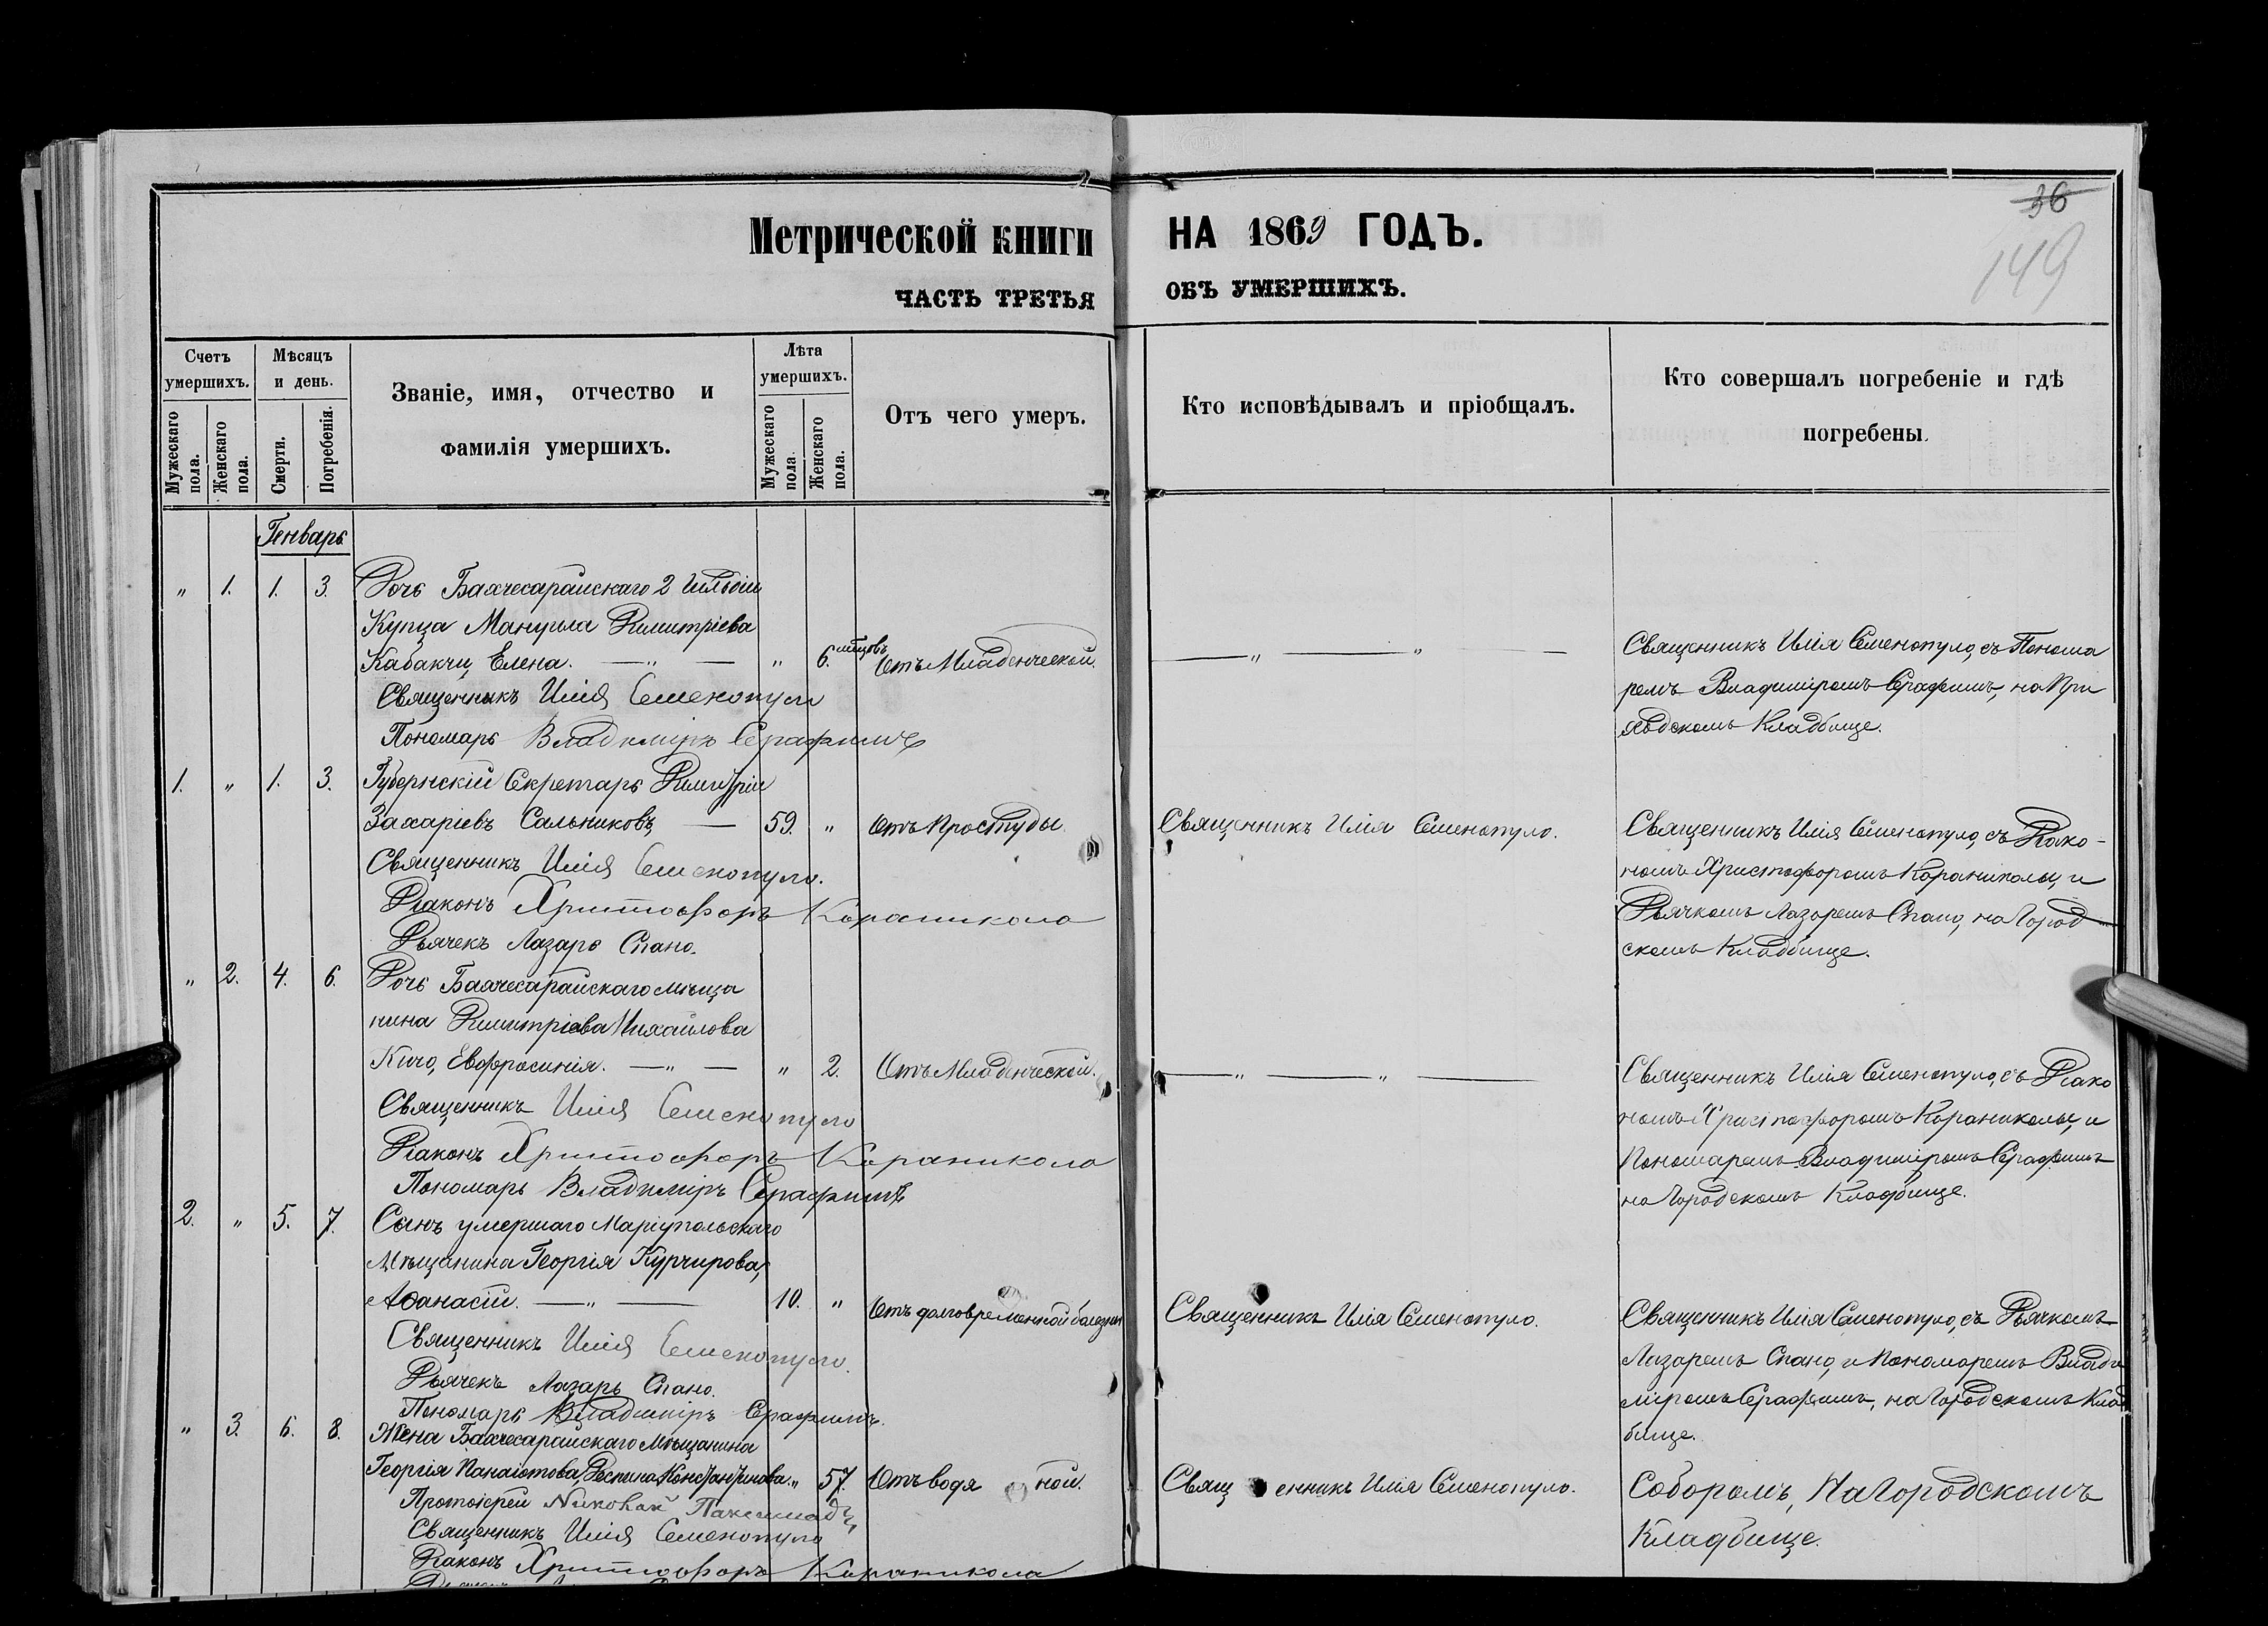 36
149
Метрической книги НА 1869 ГОДЪ.
ЧАСТЬ ТРЕТЬЯ ОБЪ УМЕРШИХЪ.
Счетъ умершихъ.
Мужескаго пола.
Женскаго пола.
Мѣсяцъ и день.
Смерти.
Погребенія.
Званіе, имя, отчество и
фамилія умершихъ.
Лѣта умершихъ.
Мужескаго пола.
Женскаго пола.
Отъ чего умеръ.
Кто исповѣдывалъ и пріобщалъ.
Кто совершалъ погребеніе и гдѣ
погребены.
Генварь
" 1. 1. 3. Дочь Бахчесарайскаго 2 гильдіи
Купца Мануила Димитріева
Кабакчи, Елена. — " — " 6. мѣсцовъ Отъ Младенческой.
Священникъ Илія Семенопуло
Пономарь Владиміръ Серафимъ
— " — " —
Священникъ Илія Семенопуло, съ Понома
ремъ Владиміромъ Серафимъ, на
Кладбище.
1. " 1. 3. Губернскій Секретарь Димитрій
Захаріевъ Сальниковъ, — 59. " Отъ Простуды.
Священникъ Илія Семенопуло.
Діаконъ Христофоръ Караникола
Дьячекъ Лазарь Спано.
Священникъ Илія Семенопуло.
Священникъ Илія Семенопуло, съ Діако-
номъ Христофоромъ Караниколы, и
Дьячкомъ Лазаремъ Спано, на Город
скомъ Кладбище.
" 2. 4. 6. Дочь Бахчесарайскаго мѣща
нина Димитріева Михайлова
Кичо, Евфросинія. — " — " 2. Отъ Младенческой.
Священникъ Илія Семенопуло
Діаконъ Христофоръ Караникола
Пономарь Владиміръ Серафимъ
— " — " —
Священникъ Илія Семенопуло, съ Діако
номъ Христофоромъ Караниколы, и
Пономаремъ Владиміромъ Серафимъ
на Городскомъ Кладбище.
2. " 5. 7. Сынъ умершаго Маріупольскаго
Мѣщанина Георгія Курчирова,
Аѳанасій. — " — 10. " Отъ долговременной болезни
Священникъ Илія Семенопуло.
Дьячекъ Лазарь Спано.
Пономарь Владиміръ Серафимъ.
Священникъ Илія Семенопуло.
Священникъ Илія Семенопуло, съ Дьячкомъ
Лазаремъ Спано, и Пономаремъ Влади
міромъ Серафимъ, на Городскомъ Клад
бище.
" 3. 6. 8. Жена Бахчесарайскаго Мѣщанина
Георгія Панаіотова, Деспина Константинова. " 57. Отъ водя ной.
Протоіерей Николай
Священникъ Илія Семенопуло
Діаконъ Христофоръ Караникола
Свящ енникъ Илія Семенопуло.
Соборомъ, На Городскомъ
Кладбище.